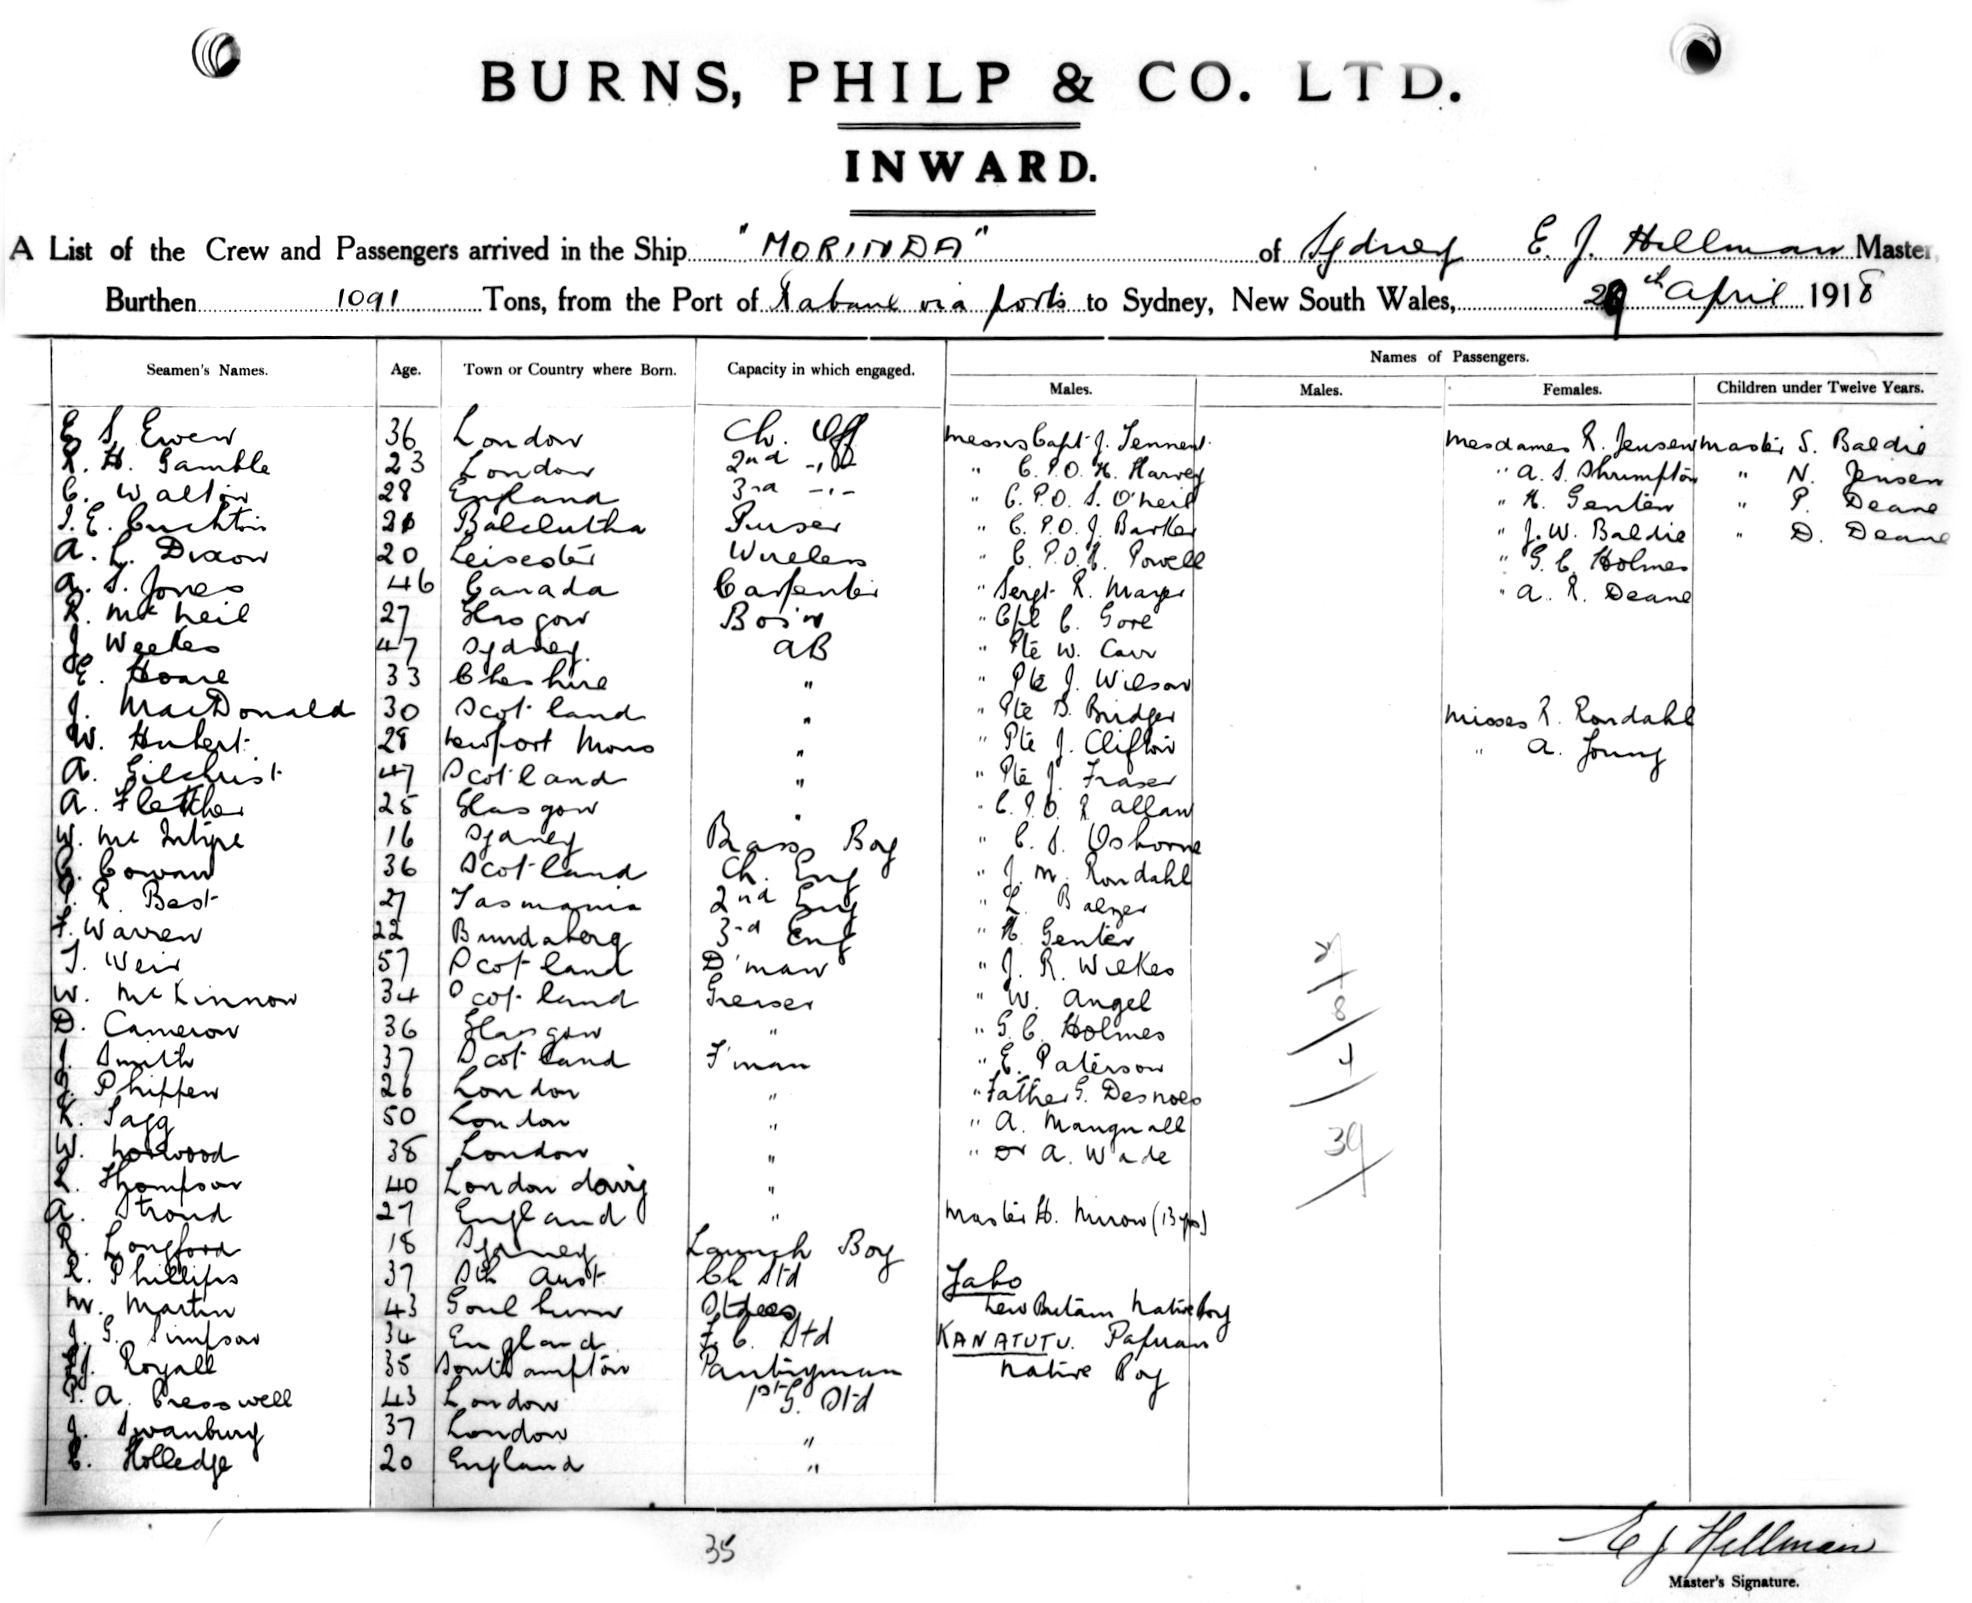 BURNS, PHILP & CO. LTD.
INWARD.
A List of the Crew and Passengers arrived in the Ship "MORINDA" of Sydney E. J. Hillman Master,
Burthen 1091 Tons, from the Port of via ports to Sydney, New South Wales, 29th April 1918
Names of Passengers.
Seamen's Names. Age. Town or Country where Born. Capacity in which engaged. Males. Males. Females. Children under Twelve Years.
E S Ewen 36 London Ch. Off Messrs Capt. J. Tennent Mesdames R. Jensen Master S. Baldie
R. H. Gamble 23 London 2nd -"- " C.P.O. H. Harvey " A. S. Shrumpton " N. Jensen
C. Walton 28 England 3rd -"- " C.P.O. S. O'Neil " H. Genter " P. Deane
Balclutha Purser " C.P.O. J. Barker " J. W. Baldie " D. Deane
A. L. Dixon 20 Leicester Wireless " C.P.O. Powell " G. C. Holmes
A. S. Jones 46 Canada Carpenter " Sergt. R. Mayer " A. R. Deane
R. McNeil 27 Glasgow Bos'n " Cpl C. Gore
J Weekes 47 Sydney AB " Pte W. Carr
E. Hoare 33 Cheshire " " Pte J. Wilson
J. MacDonald 30 Scotland " " Pte B. Bridger Misses R. Rondahl
W. Hubert 28 Newport Mons " " Pte J. Clifton " A. Young
A. Gilchrist 47 Scotland " " Pte J. Fraser
A. Fletcher 25 Glasgow " " C.P.O. R Allan
W. McIntyre 16 Sydney Brass Boy " C. S. Osborne
Cowan 36 Scotland Ch. Eng " J. M. Rondahl
R. Best 27 Tasmania 2nd Eng " L. Balzer
F. Warren 22 Bundaberg 3rd Eng " H. Genter
T. Weir 57 Scotland D'man " J. R. Wilkes
W. McKinnon 34 Scotland Greaser " W. Angel 8
D. Cameron 36 Glasgow " " G. C. Holmes
J. Smith 37 Scotland F'man " E. Paterson 4
J. Phippen 26 London " " Father G. Desnoes
K. Tagg 50 London " " A. Mangnall 39
W. Norwood 38 London " " Dr A. Wade
R. Thompson 40 London "
A. Stroud 27 England " Master H. Mirow (13 yrs)
R. Longford 18 Sydney Launch Boy
R. Phillips 37 Sth Aust. Ch Std Jabo
W. Martin 43 Goulburn New Britain Native Boy
J. G. Simpson 34 England F. C. Std KANATUTU. Papuan
Royall 35 Southampton Pantryman Native Boy
P. A. Cresswell 43 London 1st G. Std
J. Swanbury 37 London "
E. Holledge 20 England "
35
E J Hillman
Master's Signature.